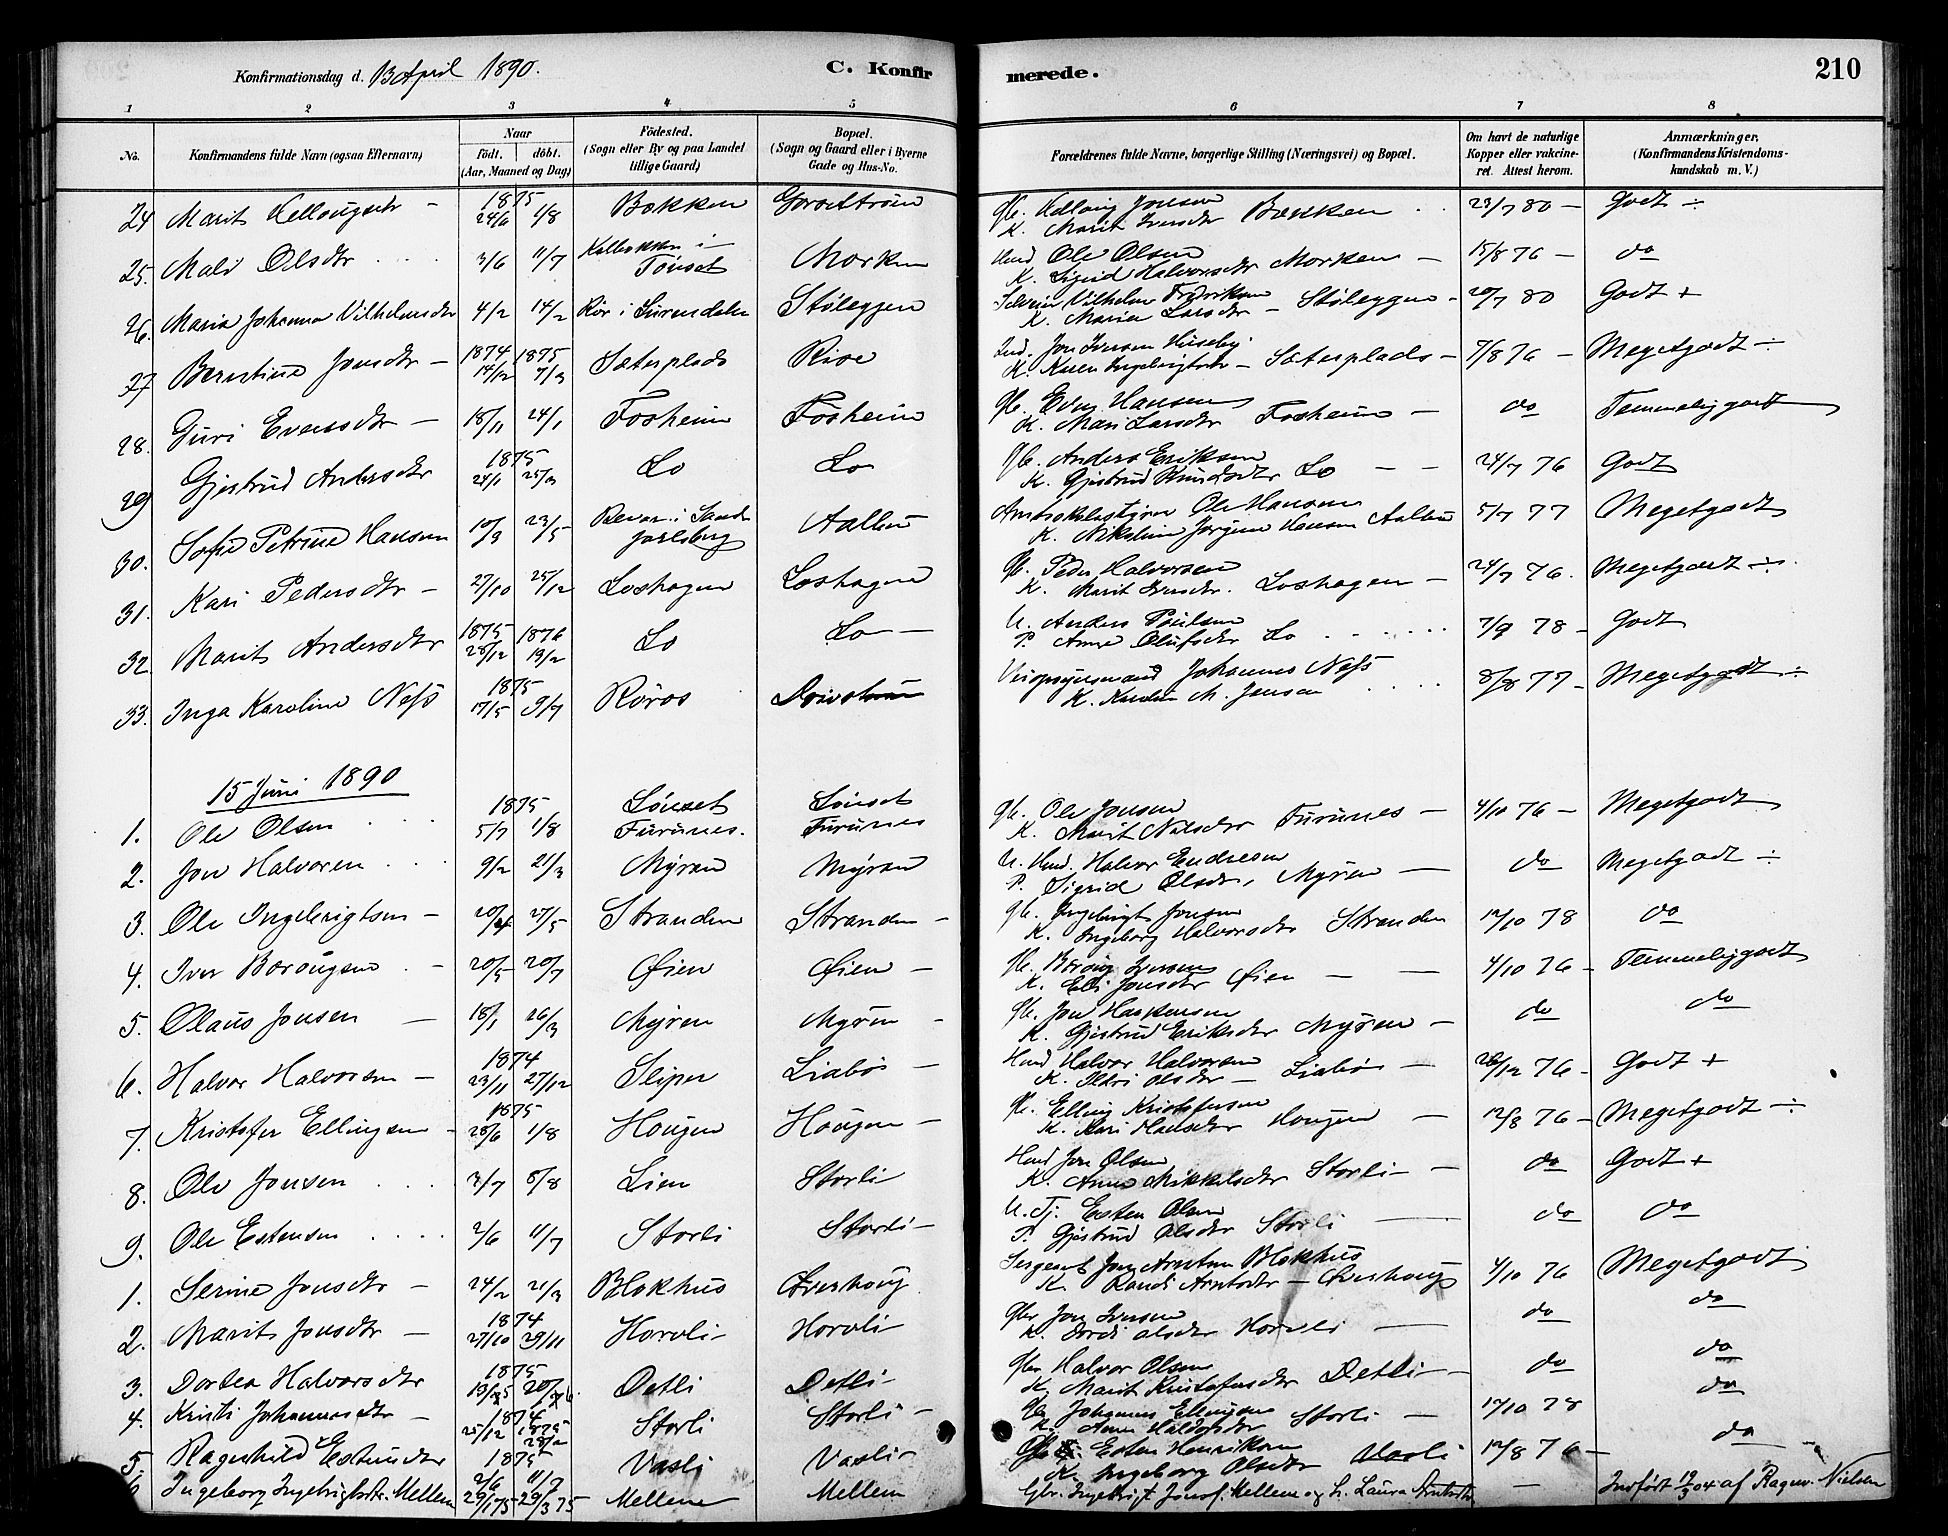 Konfirmationsdag d. 13 April 1890.
C. Konfir
merede.
210
1 2 3 4 5 6 7 8
No.
Konfirmandens fulde Navn (ogsaa Efternavn)
Naar
født. døbt.
(Aar, Maaned og Dag)
Fødested.
(Sogn eller By og paa Landet tillige Gaard)
Bopæl.
(Sogn og Gaard eller i Byerne Gade og Hus-No.
Forældrenes fulde Navne, borgerlige Stilling (Næringsvei) og Bopæl.
Om havt de naturlige Kopper eller vakcineret. Attest herom.
Anmærkninger.
(Konfirmandens Kristendomskundskab m. V.)
24 Marit 1875 24/6 1/8 Bækken Marit Iversdtr Bækken 23/7 80 - Godt ÷
25. Mali Olsdtr 3/6 11/7 i Tønset Morken Ole Olsen
K. Sigrid Halvorsdtr Morken - 15/8 76 - do
26. Maria Johanna Vilhelmsdtr 4/2 14/2 Rør i Surendalen Støleggen Vilhelm Fredriksen
K. Maria Larsdtr - Støleggen - 20/7 80 Godt +
27 Berntine Jonsdtr - 1874 14/12 1875 7/3 Sæterplads Rise Jon Iversen Huseby
K. Karen Ingebrigtsdtr - Sæterplads - 7/8 76 - Megetgodt ÷
28. Guri Evensdtr - 18/11 24/1 Fosheim Fosheim Gb. Even Hansen
K. Mari Larsdtr Fosheim - do Temmeliggodt
29 Gjertrud Andersdtr 1875 24/1 25/3 Lo Lo Gb. Anders Eriksen
K. Gjertrud Knudsdtr Lo - - 24/7 76 Godt
30. Sofie Petrine Hansen 10/3 23/5 Jarlsberg Aalbu Ole Hansen
K. Nikoline Jørgine Hansen Aalbu 5/7 77 Megetgodt
31. Kari Pedersdtr - 27/10 25/12 Loshagen Loshagen Gb. Peder Halvorsen
K. Marit Iversdtr. Loshagen - 24/7 76. Megetgodt ÷
32 Marit Andersdtr 1875 28/12 1876 13/2 Lo Lo - U. Anders Poulsen
P. Anne Olufsdtr Lo 7/9 78 - Godt
33. Inga Karoline Næss 1875 17/5 9/7 Røros Johannes Næss
K. Karolin M. Jensen 8/8 77 - Megetgodt ÷
15 Juni 1890
1. Ole Olsen 1875 5/7 1/8 Lønset Furunes. Lønset Furunes Gb. Ole Jonsen
K. Marit Nilsdtr Furunes - 4/10 76 - Megetgodt
2. Jon Halvorsen 9/2 21/3 Myren Myren U. Halvor Endresen
P. Sigrid Olsdtr, Myren - do Megetgodt ÷
3. Ole Ingebrigtsen - 20/4 27/5 Stranden Stranden - Gb. Ingebrigt Jonsen
K. Ingeborg Halvorsdtr Stranden 12/10 78 do
4. Iver Barougsen - 20/5 20/7 Øien Øien - Gb. Baroug Iversen
K. Eli Jonsdtr Øien - 4/10 76 - Temmeliggodt
5. Olaus Jonsen - 18/1 26/3 Myren Myren - Gb. Jon Haakensen
K. Gjertrud Eriksdtr Myren - do do
6. Halvor Halvorsen - 1874 23/11 27/12 Sliper Liabø - Halvor Halvorsen
K. Olsdtr - Liabø - 28/12 76 - Godt +
7. Kristofer Ellingsen - 1875 28/6 1/8 Hougen Hougen - Gb. Elling Kristofersen
K. Kari Hansdtr Hougen - 12/8 76 - Megetgodt ÷
8. Ole Jonsen 3/7 8/8 Lien Storli - Jon Olsen
K. Anne Mikkelsdtr Storli - do Godt +
9. Ole Estensen 2/6 11/7 Storli Storli - U. Tj. Esten Olsen
P. Gjertrud Olsdtr Storli do do
1. Serine Jonsdtr - 24/2 21/3 Blokhus Sergeant Jon Arntsen Blokhus
K. Randi Arntsdtr - 4/10 76 Megetgodt
2. Marit Jonsdtr - 1874 27/10 29/11 Horvli Horvli Gbr Jon Iversen
K. Olsdtr Horvli - do do
3. Dortea Halvorsdtr 1875 Detli Detli - Gbr Halvor Olsen
K. Marit Kristofersdtr Detli - do do
4. Kristi Johannesdtr - 1874 25/12 1875 28/2 Storli Storli - Gbr Johannes Ellingsen
K. Anne Halvorsdtr Storli - 17/10 78 do
5. Ragnhild Estensdtr 1875 2/6 11/7 Vasli Vasli - Esten Henriksen
K. Ingeborg Olsdtr Vasli 12/8 76 - do
Ingeborg Ingebrigtsdtr. Mellem 29/1 75 29/3 75 Mellem Mellem Gbr. Ingebrigt Jonsen Mellem og h. Laura Arntsdtr - Indført 19/3 04 af Ragnv. Nielsen